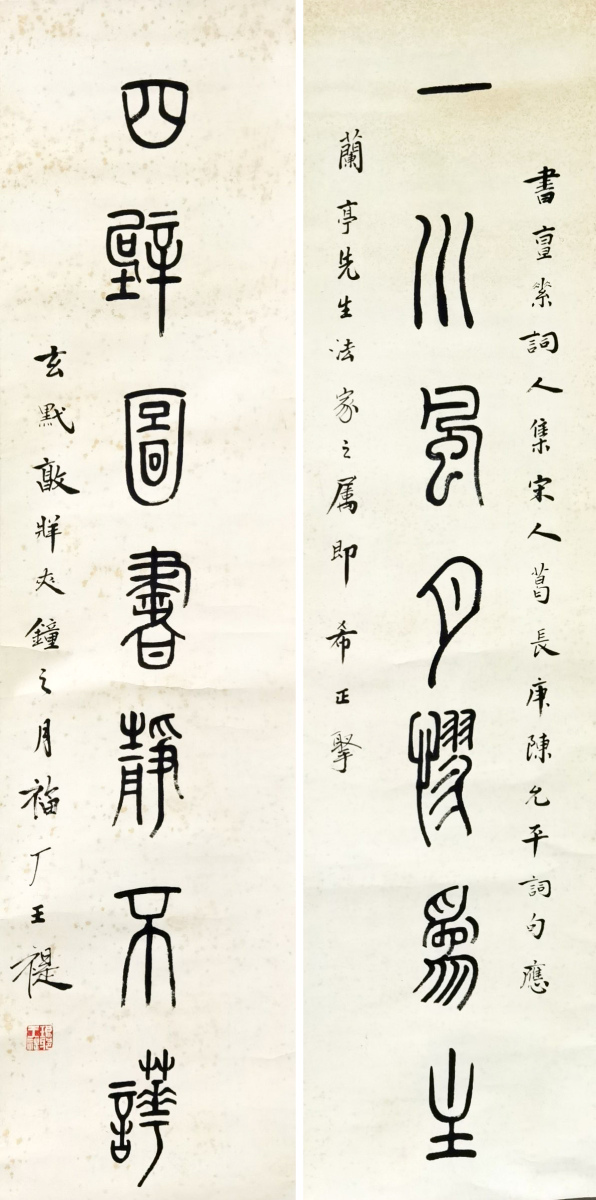 書亶素詞人集宋人葛長庚陳允平詞句應
一川風月憀為主
蘭亭先生法家之属即希正掔
四壁圖書靜不譁
玄黓敦牂夾鐘之月福厂王禔